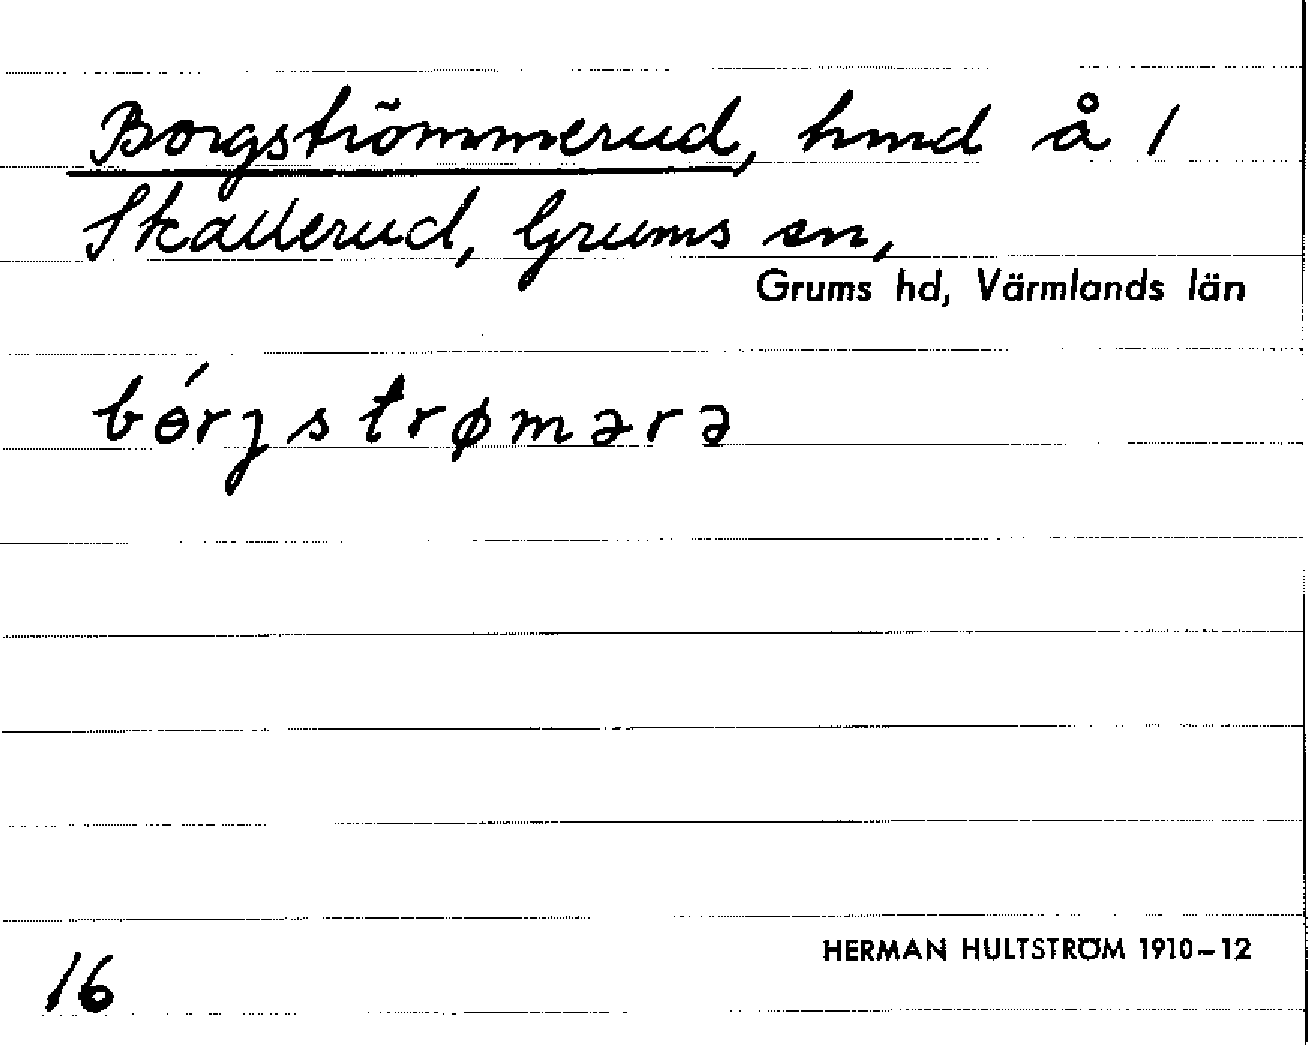 Borgströmmerud, hmd å 1
Skallerud, Grums sn,
Grums hd, Värmlands län
bɵ́rȷstrømərə
HERMAN HULTSTRÖM 1910–12
16